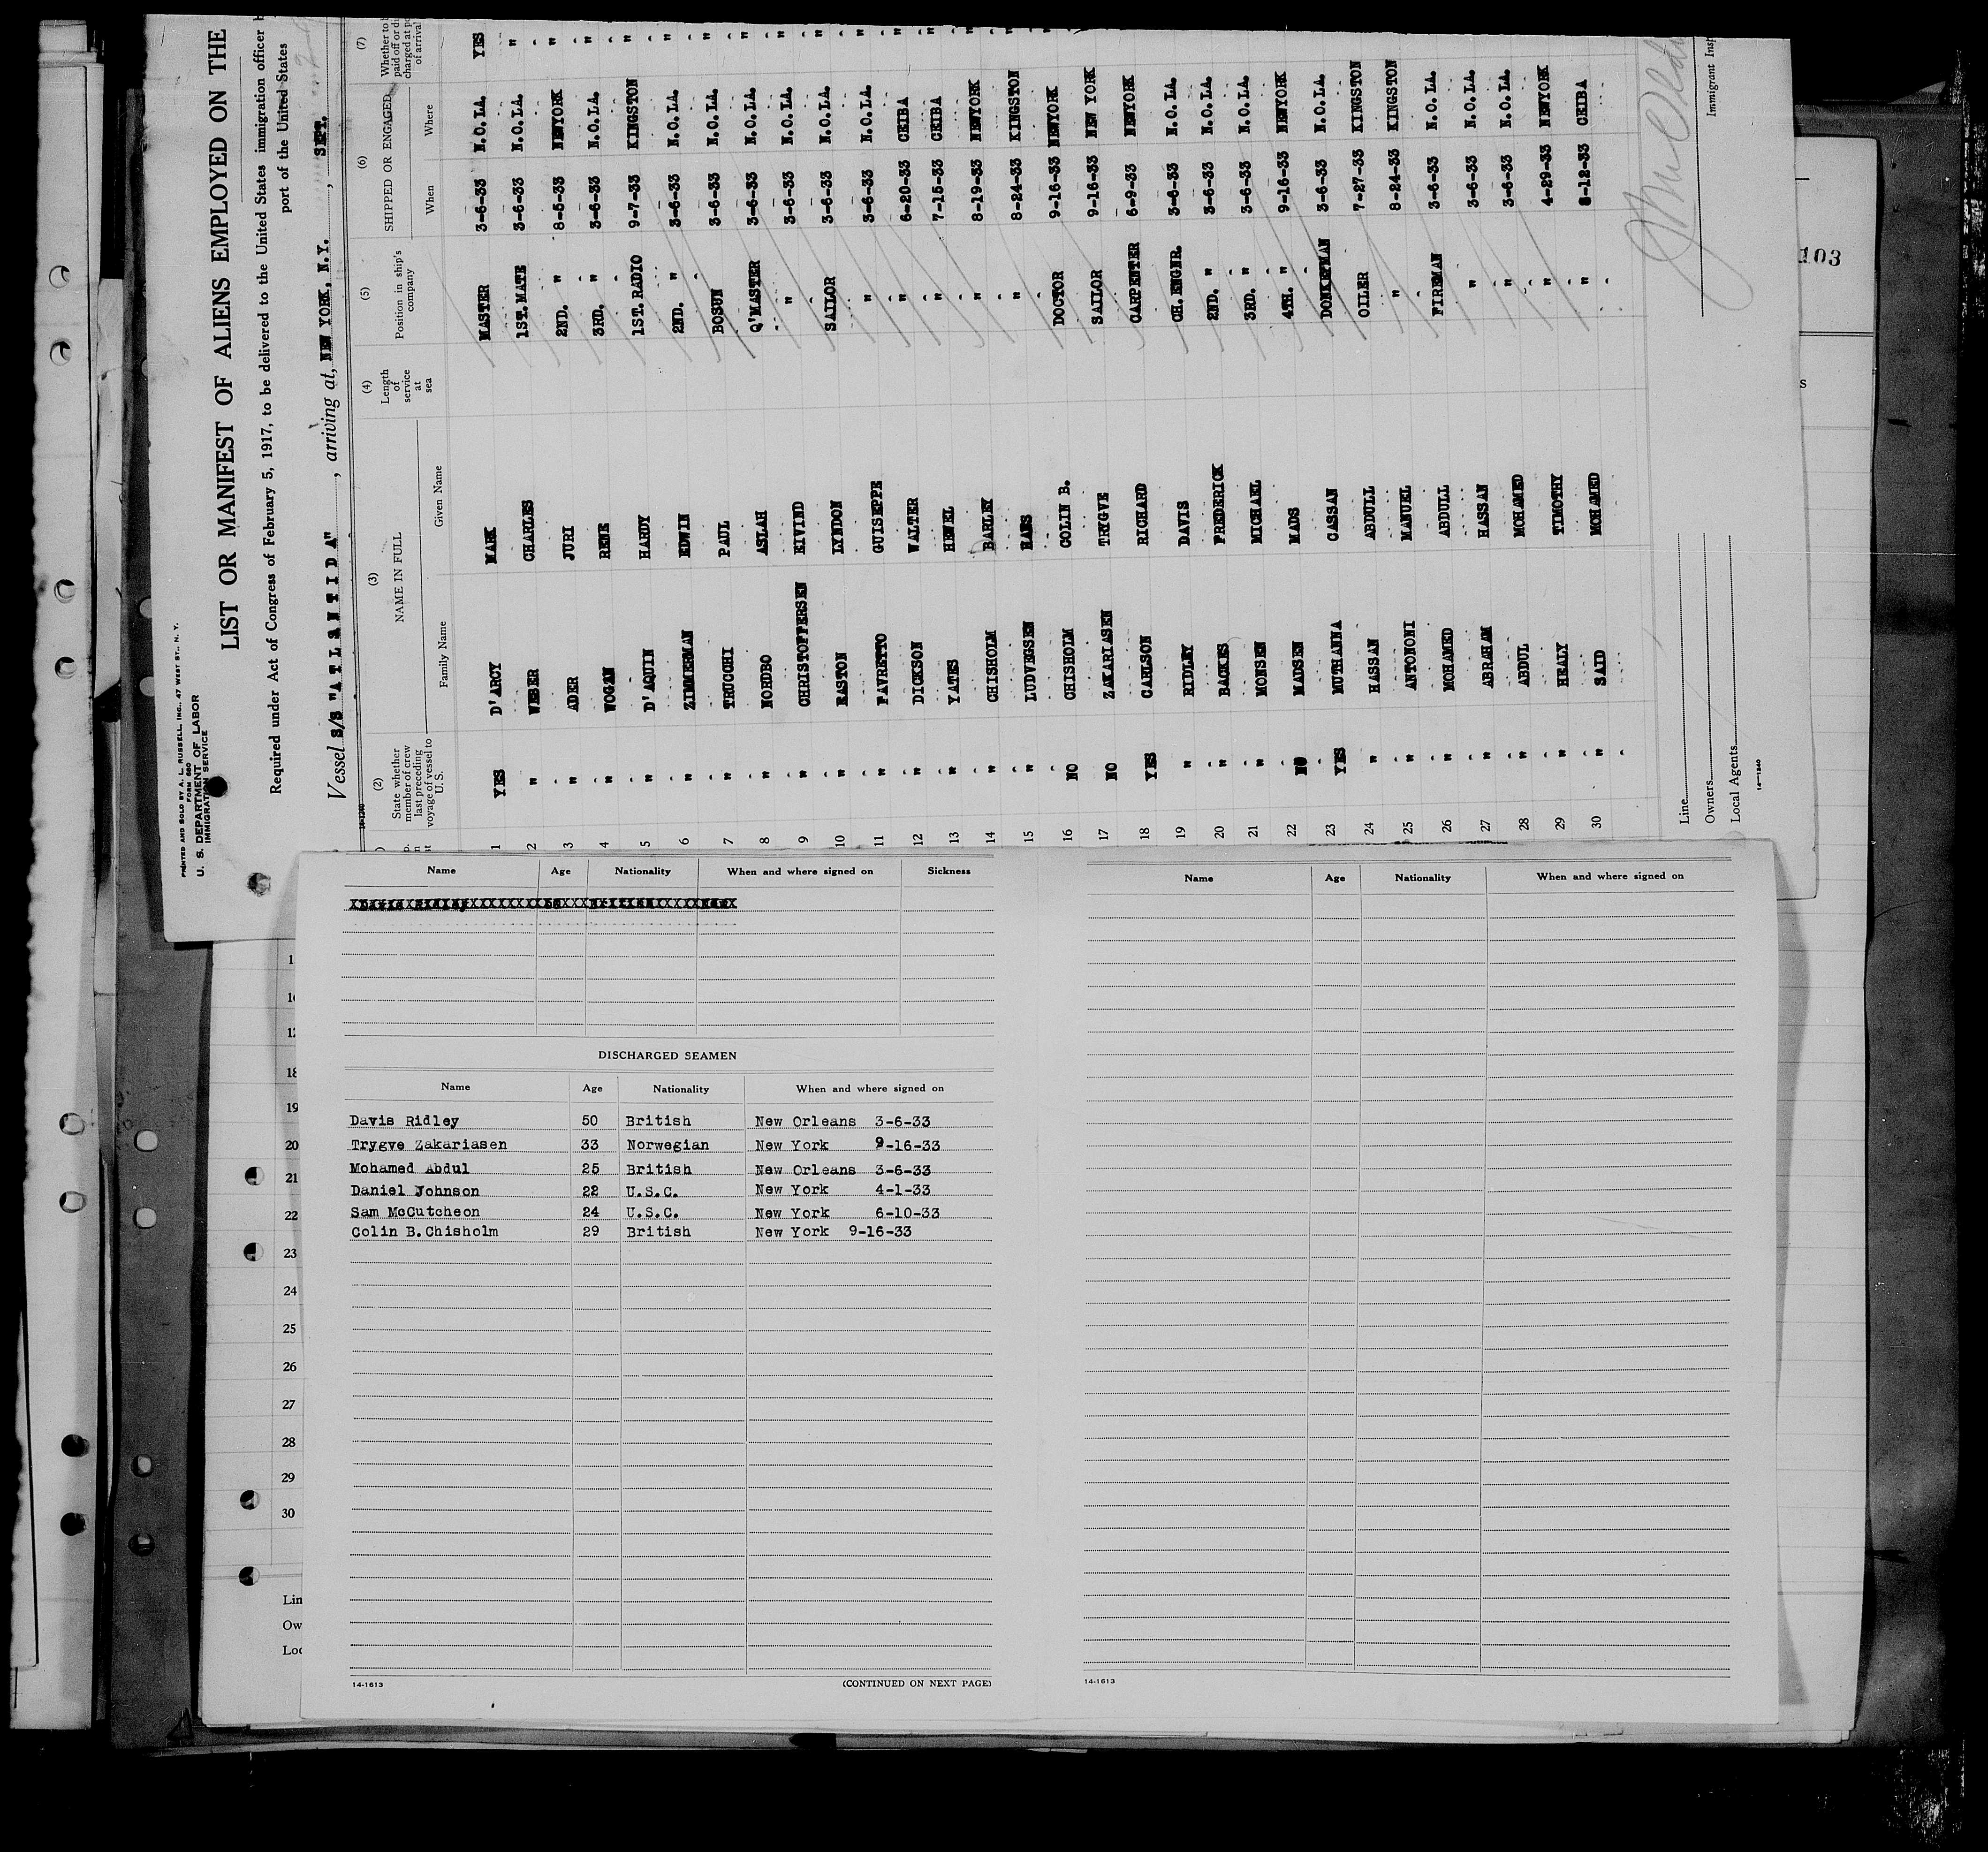 PRINTED AND SOLD BY A. L. RUSSELL, INC., 47 WEST ST., N. Y.
FORM 680
U. S. DEPARTMENT OF LABOR
IMMIGRATION SERVICE
LIST OR MANIFEST OF ALIENS EMPLOYED ON THE
Required under Act of Congress of February 5, 1917, to be delivered to the United States immigration officer
port of the United States
Vessel S/S "ATLANTIDA", arriving at, NEW YORK, N.Y., SEPT.
(2) (3) (4) (5) (6) (7)
State whether member of crew last preceding voyage of vessel to U. S. NAME IN FULL Length of service at sea Position in ship's company SHIPPED OR ENGAGED Whether to
paid off or
charged at
of arrival
Family Name Given Name When Where
1 YES D'ARCY MARK MASTER 3-6-33 N.O.LA. YES
2 " WEBER CHARLES 1ST.MATE 3-6-33 N.O.LA. "
3 " ADER JURI 2ND. " 8-5-33 NEWYORK "
4 " WOGAN RENE 3RD. " 3-6-33 N.O.LA. "
5 " D'AQUIN HARDY 1ST.RADIO 9-7-33 KINGSTON "
6 " ZIMMERMAN EDWIN 2ND. " 3-6-33 N.O.LA. "
7 " TRUCCHI PAUL BOSUN 3-6-33 N.O.LA. "
8 " NORDBO ASLAH Q'MASTER 3-6-33 N.O.LA. "
9 " CHRISTOFFERSEN EIVIND " 3-6-33 N.O.LA. "
10 " EASTON LYNDON SAILOR 3-6-33 N.O.LA. "
11 " FAVRETTO GUISEPPE " 3-6-33 N.O.LA. "
12 " DICKSON WALTER " 6-20-33 CEIBA "
13 " YATES HEWEL " 7-15-33 CEIBA "
14 " CHISHOLM BARLEY " 8-19-33 NEWYORK "
15 " LUDVEGSEN HANS " 8-24-33 KINGSTON "
16 NO CHISHOLM COLIN B. DOCTOR 9-16-33 NEWYORK "
17 NO ZAKARIASEN TRYGVE SAILOR 9-16-33 NEW YORK
18 YES CARLSON RICHARD CARPENTER 6-9-33 NEWYORK
19 " RIDLEY DAVIS CH.ENGNR. 3-6-33 N.O.LA.
20 " BACKES FREDERICK 2ND. " 3-6-33 N.O.LA.
21 " MONSEN MICHAEL 3RD. " 3-6-33 N.O.LA.
22 NO MADSEN MADS 4TH. " 9-16-33 NEWYORK
23 YES MUTHANNA CASSAN DONKEYMAN 3-6-33 N.O.LA.
24 " HASSAN ABDULL OILER 7-27-33 KINGSTON
25 " ANTONONI MANUEL " 8-24-33 KINGSTON
26 " MOHAMED ABDULL FIREMAN 3-6-33 N.O.LA.
27 " ABRAHAM HASSAN " 3-6-33 N.O.LA.
28 " ABDUL MOHAMED " 3-6-33 N.O.LA.
29 " HEALY TIMOTHY " 4-29-33 NEWYORK
30 " SAID MOHAMED " 8-12-33 CEIBA
Line
Owners
Local Agents
14-1240
Immigrant Insp
103
s
Name Age Nationality When and where signed on Sickness
DISCHARGED SEAMEN
Name Age Nationality When and where signed on
Davis Ridley 50 British New Orleans 3-6-33
Trygve Zakariasen 33 Norwegian New York 9-16-33
Mohamed Abdul 25 British New Orleans 3-6-33
Daniel Johnson 22 U.S.C. New York 4-1-33
Sam McCutcheon 24 U.S.C. New York 6-10-33
Colin B.Chisholm 29 British New York 9-16-33
14-1613 (CONTINUED ON NEXT PAGE)
Name Age Nationality When and where signed on
14-1613
18
19
20
21
22
23
24
25
26
27
28
29
30
Lin
Ow
Loc